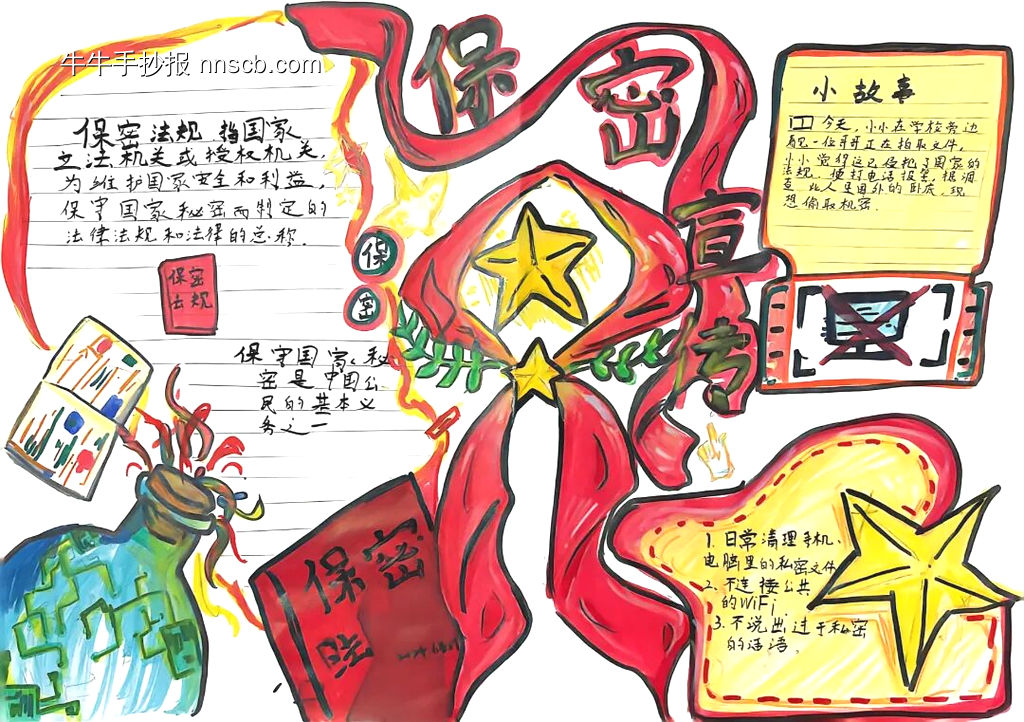 牛牛手抄报 nnscb.com
保密宣传
保密法规 指国家
立法机关或授权机关,
为维护国家安全和利益,
保守国家秘密而制定的
法律法规和法律的总称.
保密
法规
保
密
保守国家秘
密是中国公
民的基本义
务之一
保密
小故事
今天,小小在学校旁边
看见一位哥哥正在拍取文件,
小小觉得这已侵犯了国家的
法规,便打电话报警,根调
查,此人是国外的卧底,现
想偷取机密.
1. 日常清理手机、
电脑里的私密文件
2. 不连接公共
的WiFi.
3. 不说出过于私密
的话语。